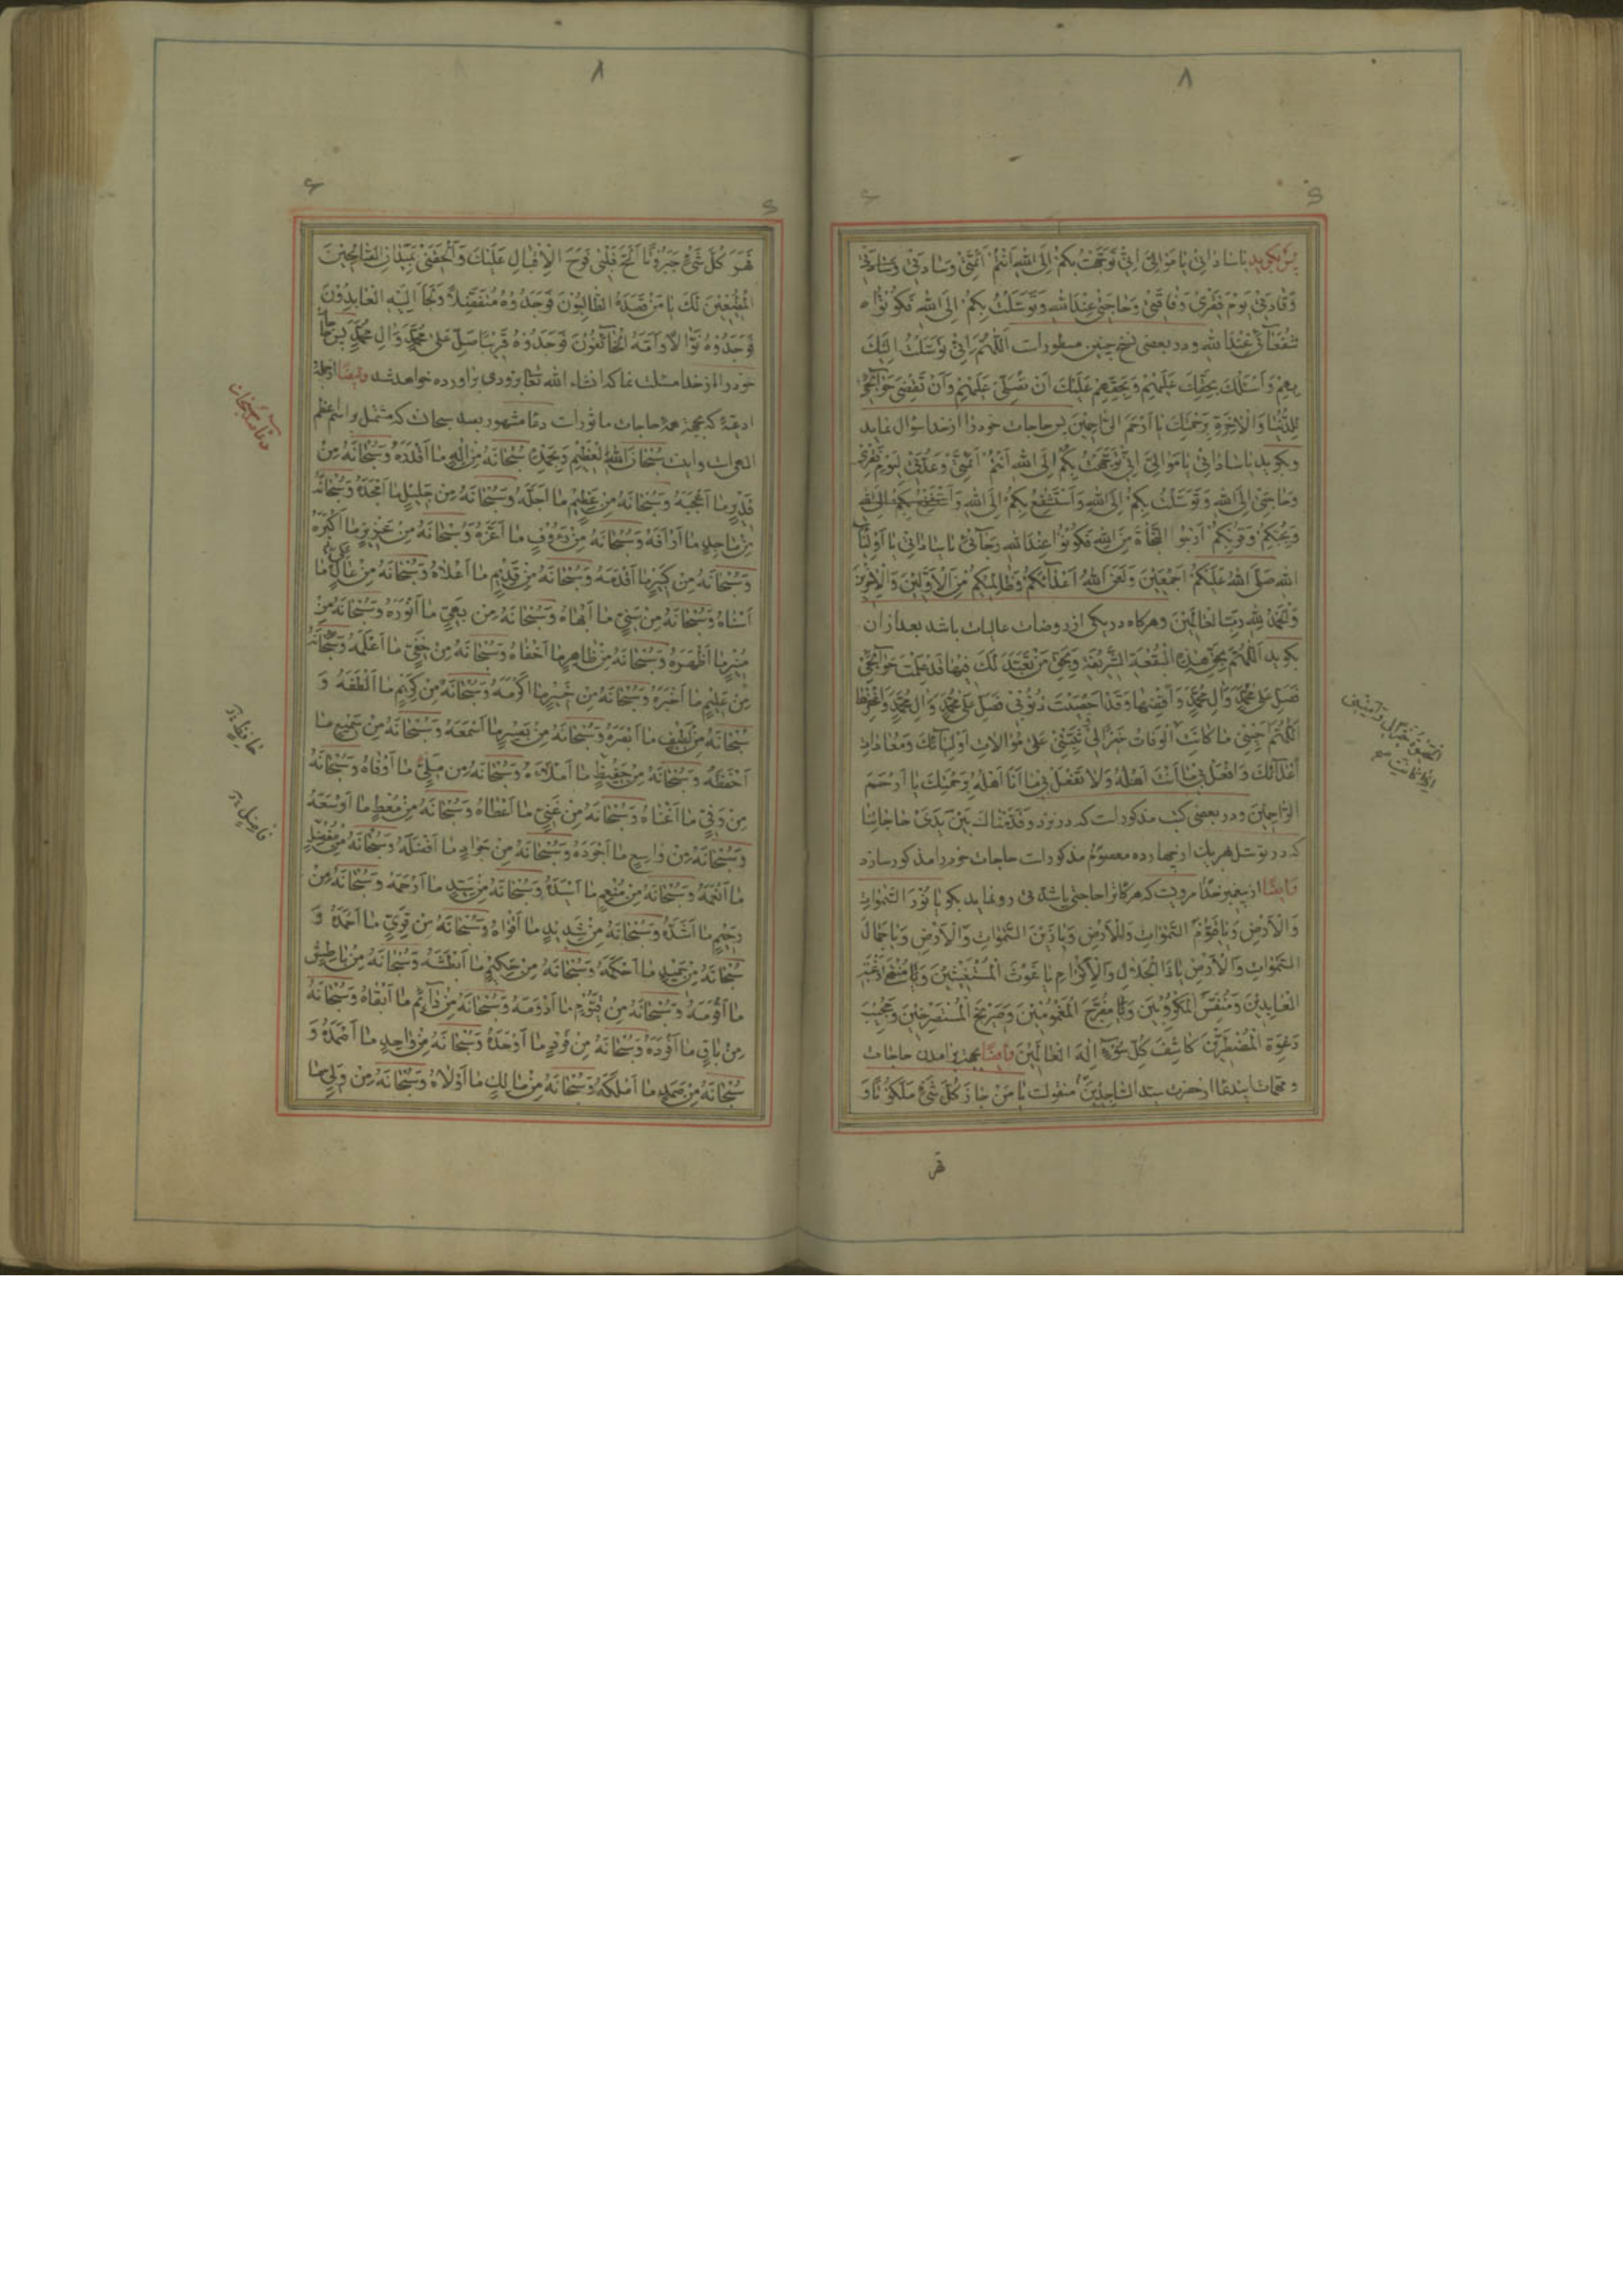 ۸
پس بکوید یا ساداتی یا موالی انی توجهت بکم الی الله انتم ائمتی وسادتی
وقادتی یوم فقری وفاقتی وحاجتی عند الله وتوسلت بکم الی الله فکونوا
شفعائی عند الله ودر بعضی نسخ چنین مسطورات اللهم انی توسلت الیک
بهم واسئلک بحقک علیهم وبحقهم علیک ان تصلی علیهم وان تقضی حوائجی
للدنیا والاخرة برحمتک یا ارحم الراحمین پس حاجات خود را از خدا سؤال نماید
وبکوید یا ساداتی یا موالی انی توجهت بکم الی الله انتم ائمتی وعدتی لیوم فقری
وحاجتی الی الله وتوسلت بکم الی الله واستشفع بکم الی الله
وبحبکم وقربکم ارجوا النجاة من الله فکونوا عند الله رجائی یا ساداتی یا اولیاء
الله صلی الله علیکم اجمعین ولعن الله اعدائکم وظالمیکم من الاولین والاخرین
والحمد لله رب العالمین وهرکاه در یکی از روضات عالیات باشد بعد از ان
بکوید اللهم بحق هذه البقعة الشریفة وبحق من تعبد لک فیها قد علمت حوائجی
فصل علی محمد وال محمد واقضها وقد احصیت ذنوبی فصل علی محمد وال محمد واغفرها
اللهم احینی ما کانت الحیوة خیرا لی وامتنی اذا کانت الوفات خیرا لی ثبتنی علی موالات اولیائک ومعادات
اعدائک وافعل بی ما انت اهله ولا تفعل بی ما انا اهله برحمتک یا ارحم
الراحمین ودر بعضی کتب مذکورات که در نزد وقدمناک بین یدی حاجاتنا
که در توسل هر یک از چهارده معصوم مذکورات حاجات خود را مذکور سازد
وایضا از پیغمبر خدا مرویست که هرکه را حاجتی باشد بکوید یا نور السموات
والارض ویا قیوم السموات والارض ویا زین السموات والارض ویا جمال
السموات والارض یا ذا الجلال والاکرام یا غوث المستغیثین ویا منتهی رغبة
العابدین ومنفس المکروبین ویا مفرج المغمومین وصریخ المستصرخین ومجیب
دعوة المضطرین کاشف کل سوء اله العالمین وایضا بجهة برامدن حاجات
ومهمات ایندعا از حضرت سید الساجدین منقولست یا من حاز کل شیء ملکوتا و
قهر
۸
فهو کل شیء جبروتا الج قلبی فرح الاقبال علیک والحقنی بمیدان الصالحین
المطیعین لک یا من قصده الطالبون فوجدوه متفضلا ولجا الیه العابدون
فوجدوه نوالا وامه الخائفون فوجدوه قریبا صل علی محمد وال محمد پس حاجات
خود را از خدا مسئلت نماکه انشاء الله تعالی بزودی براورده خواهد شد وایضا ازجملهٔ
ادعیهٔ که بجهة همهٔ حاجات ماثورات دعاء مشهور بصد سبحان که مشتمل بر اسم اعظم
سبحان الله العظیم وبحمده سبحانه من اله ما اقدره وسبحانه من
قدیر ما اعجبه وسبحانه من عظیم ما اجله وسبحانه من جلیل ما امجده وسبحانه
من ماجد ما ارافه وسبحانه من رؤف ما اعزه وسبحانه من عزیز ما اکبره
وسبحانه من کبیر ما اقدمه وسبحانه من قدیم ما اعلاه وسبحانه من عال ما
اسناه وسبحانه من سنی ما ابهاه وسبحانه من بهی ما انوره وسبحانه من
منیر ما اظهره وسبحانه من ظاهر ما اخفاه وسبحانه من خفی ما اعلمه وسبحانه
من علیم ما اخبره وسبحانه من خبیر ما اکرمه وسبحانه من کریم ما الطفه و
سبحانه من لطیف ما ابصره وسبحانه من بصیر ما اسمعه وسبحانه من سمیع ما
احفظه وسبحانه من حفیظ ما املاه وسبحانه من ملی ما اوفاه وسبحانه
من وفی ما اغناه وسبحانه من غنی ما اعطاه وسبحانه من معط ما اوسعه
وسبحانه من واسع ما اجوده وسبحانه من جواد ما افضله وسبحانه من مفضل
ما انعمه وسبحانه من منعم ما اسیده وسبحانه من سید ما ارحمه وسبحانه من
رحیم ما اشده وسبحانه من شدید ما اقواه وسبحانه من قوی ما احمده و
سبحانه من حمید ما احکمه وسبحانه من حکیم ما ابطشه وسبحانه من باطش
ما اقومه وسبحانه من قیوم ما ادومه وسبحانه من دائم ما ابقاه وسبحانه
من باق ما افرده وسبحانه من فرد ما اوحده وسبحانه من واحد ما اصمده و
سبحانه من صمد ما املکه وسبحانه من مالک ما اولاه وسبحانه من ولی ما
دعاء صد سبحان
حافظ
فاضل